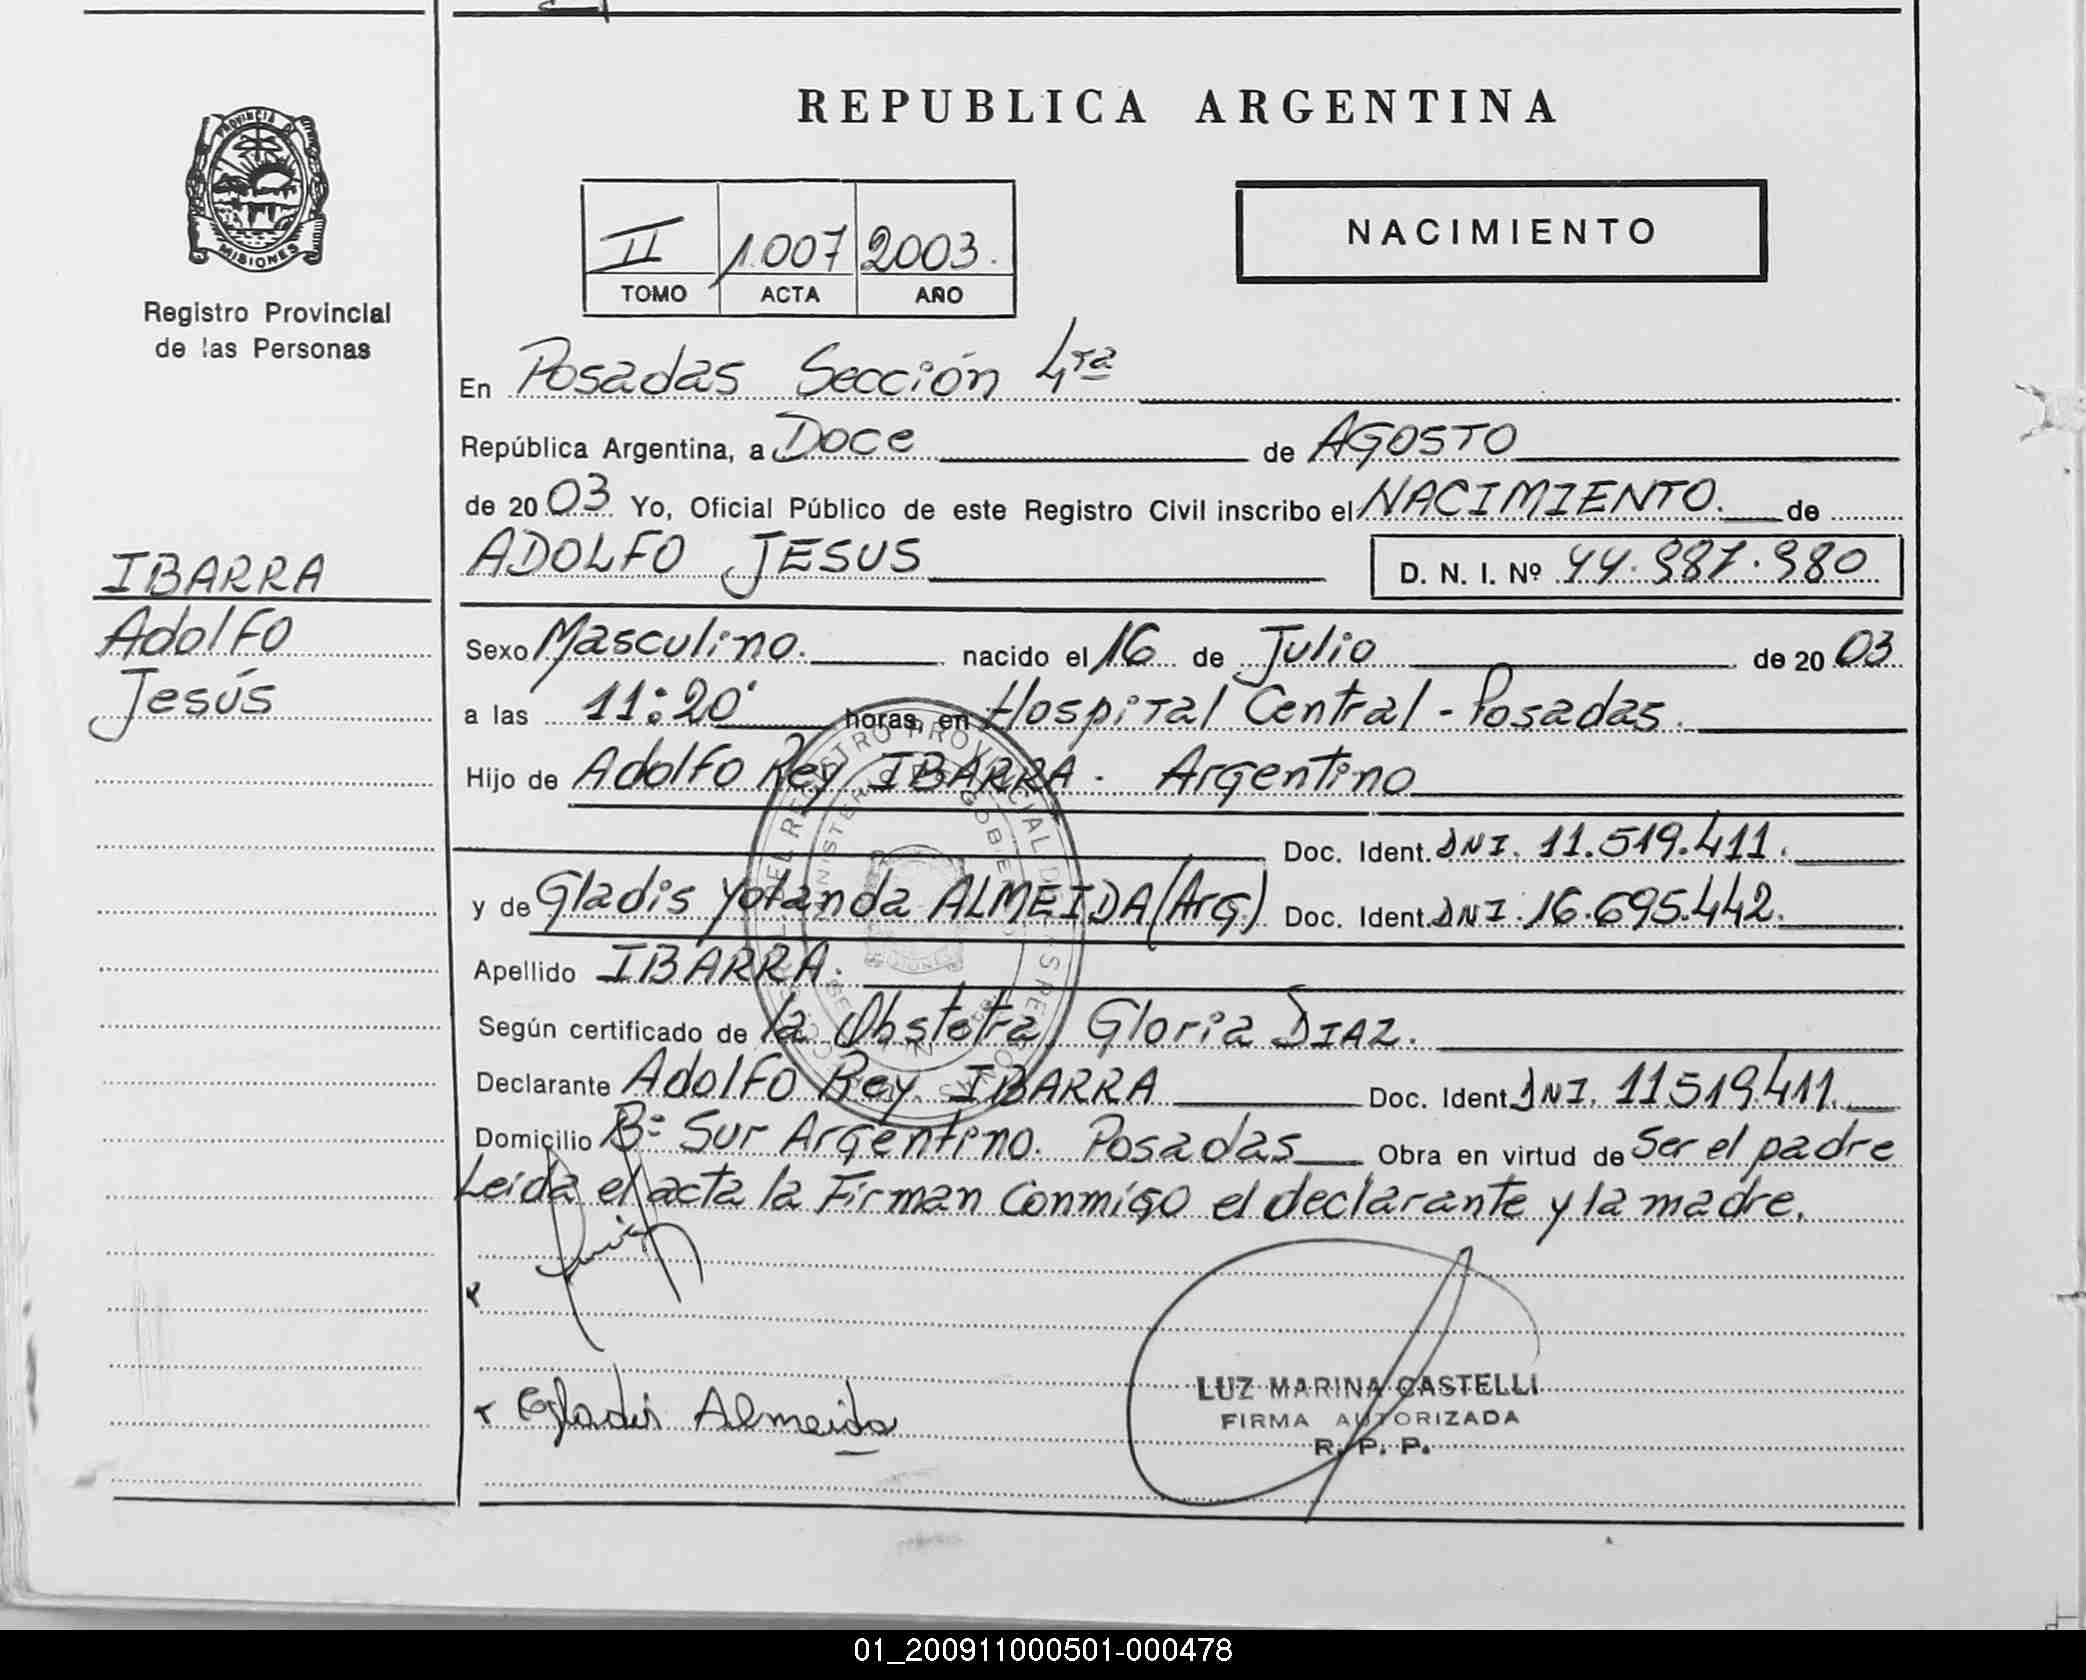 REPUBLICA ARGENTINA
PROVINCIA DE
MISIONES
Registro Provincial
de las Personas
II 1.007 2003.
TOMO ACTA AÑO
NACIMIENTO
En Posadas Sección 4ta
República Argentina, a Doce de AGOSTO
de 20 03 Yo, Oficial Público de este Registro Civil inscribo el NACIMIENTO. de
IBARRA
Adolfo
Jesús
ADOLFO JESUS D. N. I. Nº
Sexo Masculino. nacido el 16 de Julio de 20 03
a las 11:20' horas, en Hospital Central - Posadas.
Hijo de Adolfo Rey IBARRA. Argentino
Doc. Ident. DNI. 11.519.411.
y de Gladis Yolanda ALMEIDA (Arg.) Doc. Ident. DNI. 16.695.442.
Apellido IBARRA.
Según certificado de la Obstetra, Gloria DIAZ.
Declarante Adolfo Rey. IBARRA Doc. Ident. DNI. 11519.411.
Domicilio Bº Sur Argentino. Posadas Obra en virtud de Ser el padre
Leída el acta la Firman Conmigo el declarante y la madre.
Gladis Almeida
LUZ MARINA CASTELLI
FIRMA AUTORIZADA
R. P. P.
01_200911000501-000478